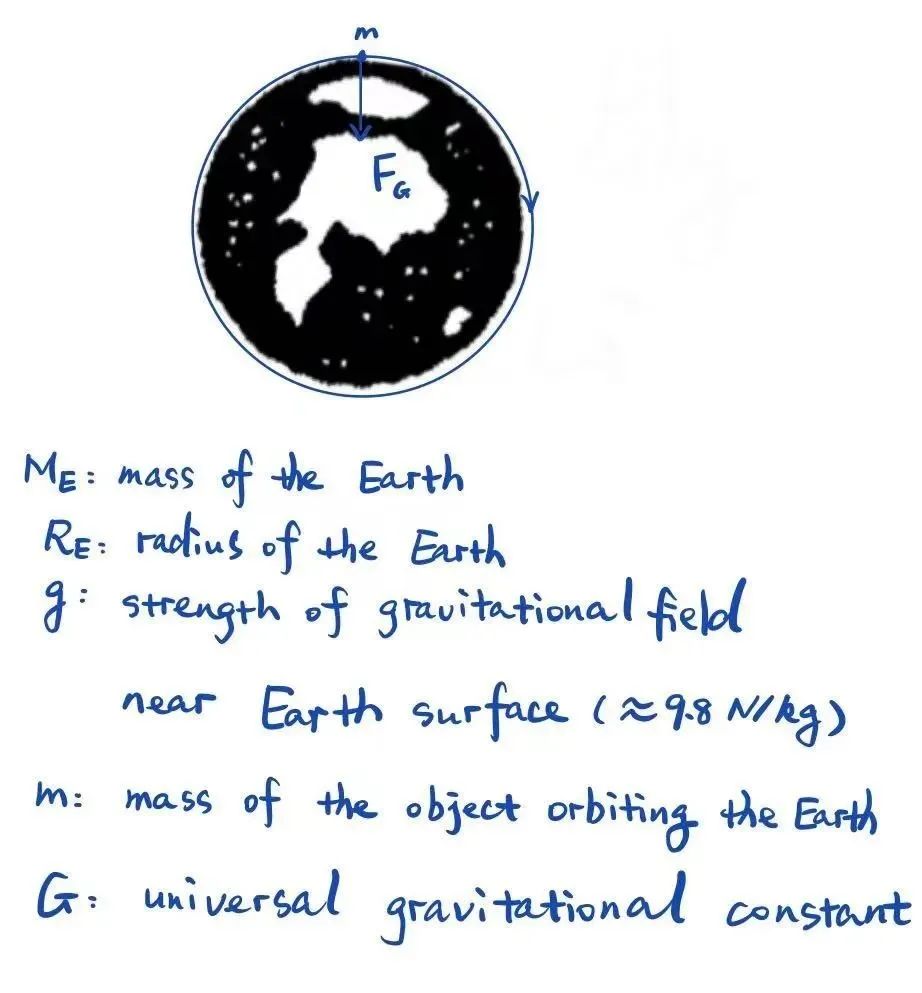 m
F_G
M_E: mass of the Earth
R_E: radius of the Earth
g: strength of gravitational field
near Earth surface (≈9.8 N/kg)
m: mass of the object orbiting the Earth
G: universal gravitational constant